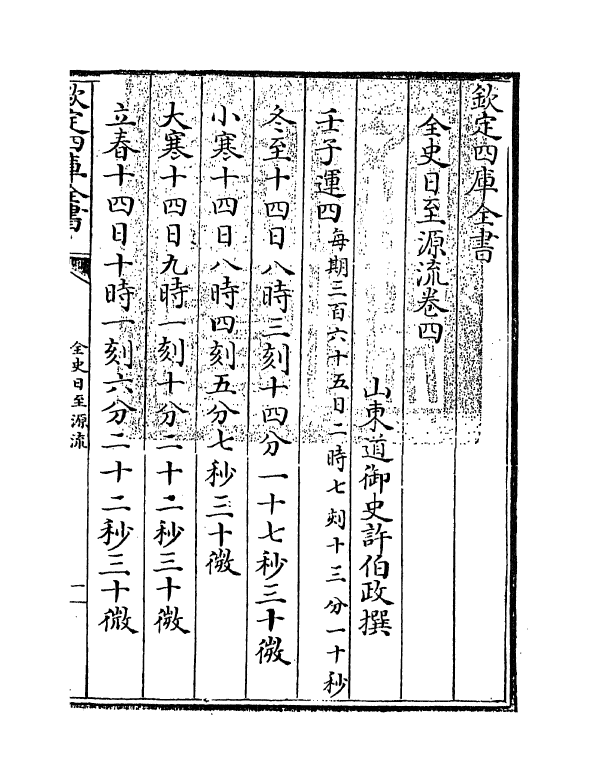 欽定四庫全書
全史日至源流卷四
山東道御史許伯政撰
壬子運四每期三百六十五日二時七刻十三分一十秒
冬至十四日八時三刻十四分一十七秒三十微
小寒十四日八時四刻五分七秒三十微
大寒十四日九時一刻十分二十二秒三十微
立春十四日十時一刻六分二十二秒三十微
欽定四庫全書
全史日至源流
一